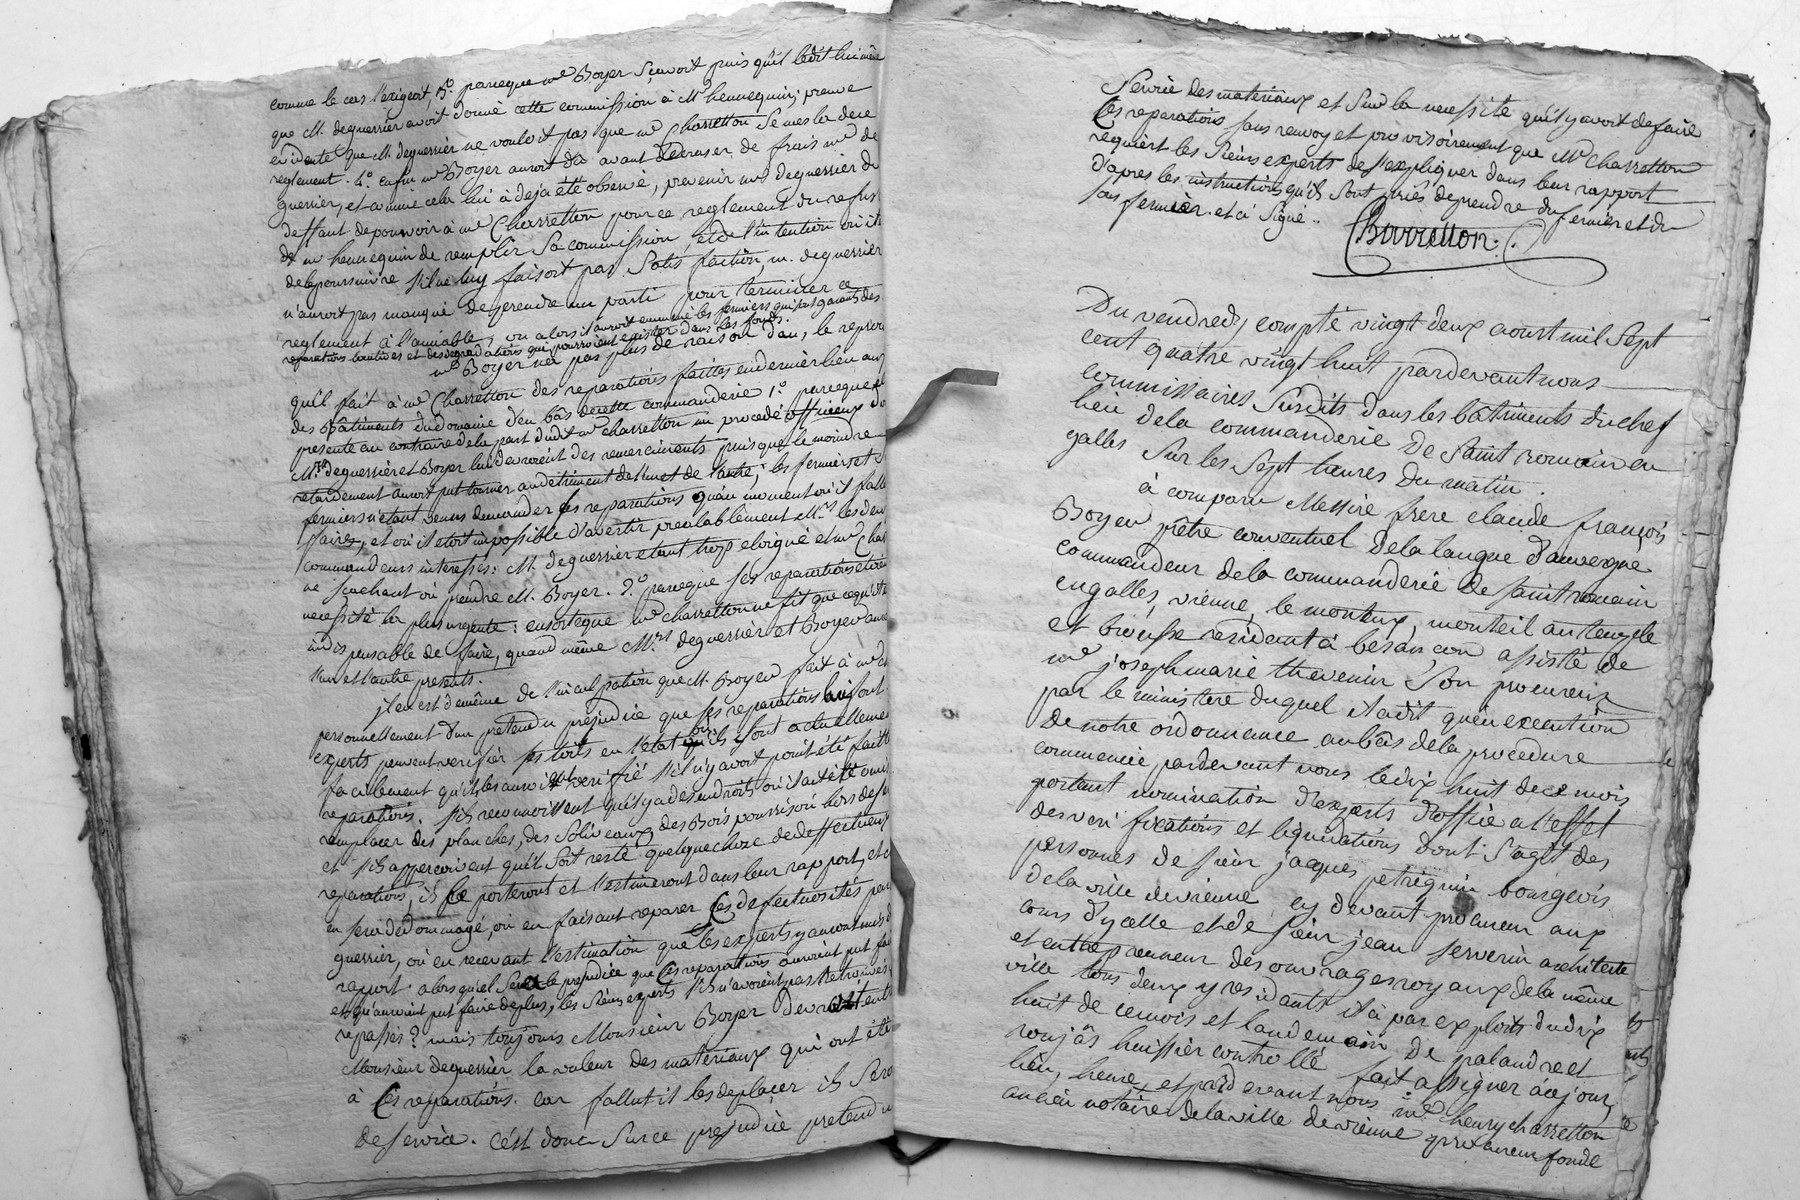 comme le cas l'exigeoit, 3.° parceque me Boyer scavoit puis qu'il le dit lui même
que M. deguerrier avoit donné cette commission à Mr hennequin; preuve
evidente que M. deguerrier ne vouloit pas que me Charretton se mesla de ce
reglement. 4.° enfin me Boyer auroit dû avant de de frais mr de
guerrier, et comme cela lui à deja été observé, prevenir mr deguerrier du
deffaut de pouvoir à me Charretton pour ce reglement du refus
de mr hennequin de remplir sa commission, et de l'intention où il
de le poursuivre s'il ne luy faisoit pas satisfaction, m. deguerrier
n'auroit pas manqué de prendre un parti pour terminer ce
reglement à l'amiable, ou alors il auroit emmené les fermiers qui sont garants des
reparations locatives et des degradations qui pourroient exister dans les fonds.
me Boyer n'a pas plus de raison dans le reproche
qu'il fait à me Charretton des reparations faittes en dernier lieu aux
des bâtiments du domaine d'en bas de cette commanderie 1.° parceque
presente au contraire de la part dudit me charretton un procedé officieux
Mrs deguerrier et Boyer lui devroient des remerciments puis que le moindre
retardement auroit put tourner au detriment de l'un et de l'autre; les fermiers et
fermiers n'etant venus demander ces reparations qu'au moment où il
faires, et où il etoit impossible d'avertir prealablement Mrs les deux
commandeurs interessés: M. deguerrier etant trop eloigné et me
ne scachant où prendre M. Boyer. 2.° parceque ses reparations etoient
necessité la plus urgente: ensorteque me charretton ne fit que ce qu'il
indispensable de faire, quand même Mrs deguerrier et Boyer
l'un et l'autre presents.
jl en est de même de l'inculpation que M. Boyer fait à me
personnellement d'un pretendu prejudice que ses reparations lui font.
experts peuvent verifier ses toits en l'etat où ils sont actuellement
facilement qu'ils les auroient verifié s'il n'y avoit point été fait
reparations. s'ils reconnoissent qu'il y a des endroits où il ait été omis
remplacer des planches, des soliveaux, des Bois pourris ou hors de
et s'ils apperçoivent qu'il soit resté quelque choze de deffectueux
reparations, ils le porteront et l'estimeront dans leur rapport, et
en sera dedommagé, ou en faisant reparer ces defectuosités par
guerrier, ou en recevant l'estimation que les experts y auront mis
rapport. alors quel sera le prejudice que ces reparations auroient put
et qu'auroient put faire de plus, les sieurs experts s'ils n'avoient pas trouvés
repassés? mais toujours Monsieur Boyer devra
Monsieur deguerrier la valeur des materiaux qui ont été
à ces reparations. car fallut il les deplacer ils
de service. c'est donc sur ce prejudice pretendu
service des materiaux et sur la necessité qu'il y avoit de faire
ces reparations sans renvoy et provisoirement que Me Charretton
requiert les sieurs experts de s'expliquer dans leur rapport
d'apres les instructions qu'ils sont priés de prendre du fermier et du
sous fermier. et à signé..
Charretton.
Du vendredy compté vingt deux aoust mil sept
cent quatre vingt huit pardevant nous
commissaires susdits dans les bâtiments du chef
lieu de la commanderie de Saint romain en
galles sur les sept heures du matin.
à comparu Messire frere claude françois
Boyer prêtre conventuel de la langue d'auvergne
commandeur de la commanderie de Saint romain
en galles, vienne, le monteux, monteil au temple
et residant à besançon assisté de
me joseph marie thevenin son procureur
par le ministere duquel il a dit qu'en execution
de notre ordonnance au bas de la procedure
commencée pardevant nous le dix huit de ce mois
portant nomination d'experts d'office a l'effet
des verifications et liquidations dont s'agit des
personnes de sieur jacques petrequin bourgeois
de la ville de vienne cy devant procureur aux
cours d'ycelle et de sieur jean serverin architecte
et entrepreneur des ouvrages royaux de la même
ville tous deux y residants il a par exploits du dix
huit de ce mois et landemain de palandre et
roujas huissier controllé fait assigner à ce jour,
lieu, heure, et pardevant nous me henry charretton
ancien notaire de la ville de vienne procureur fondé